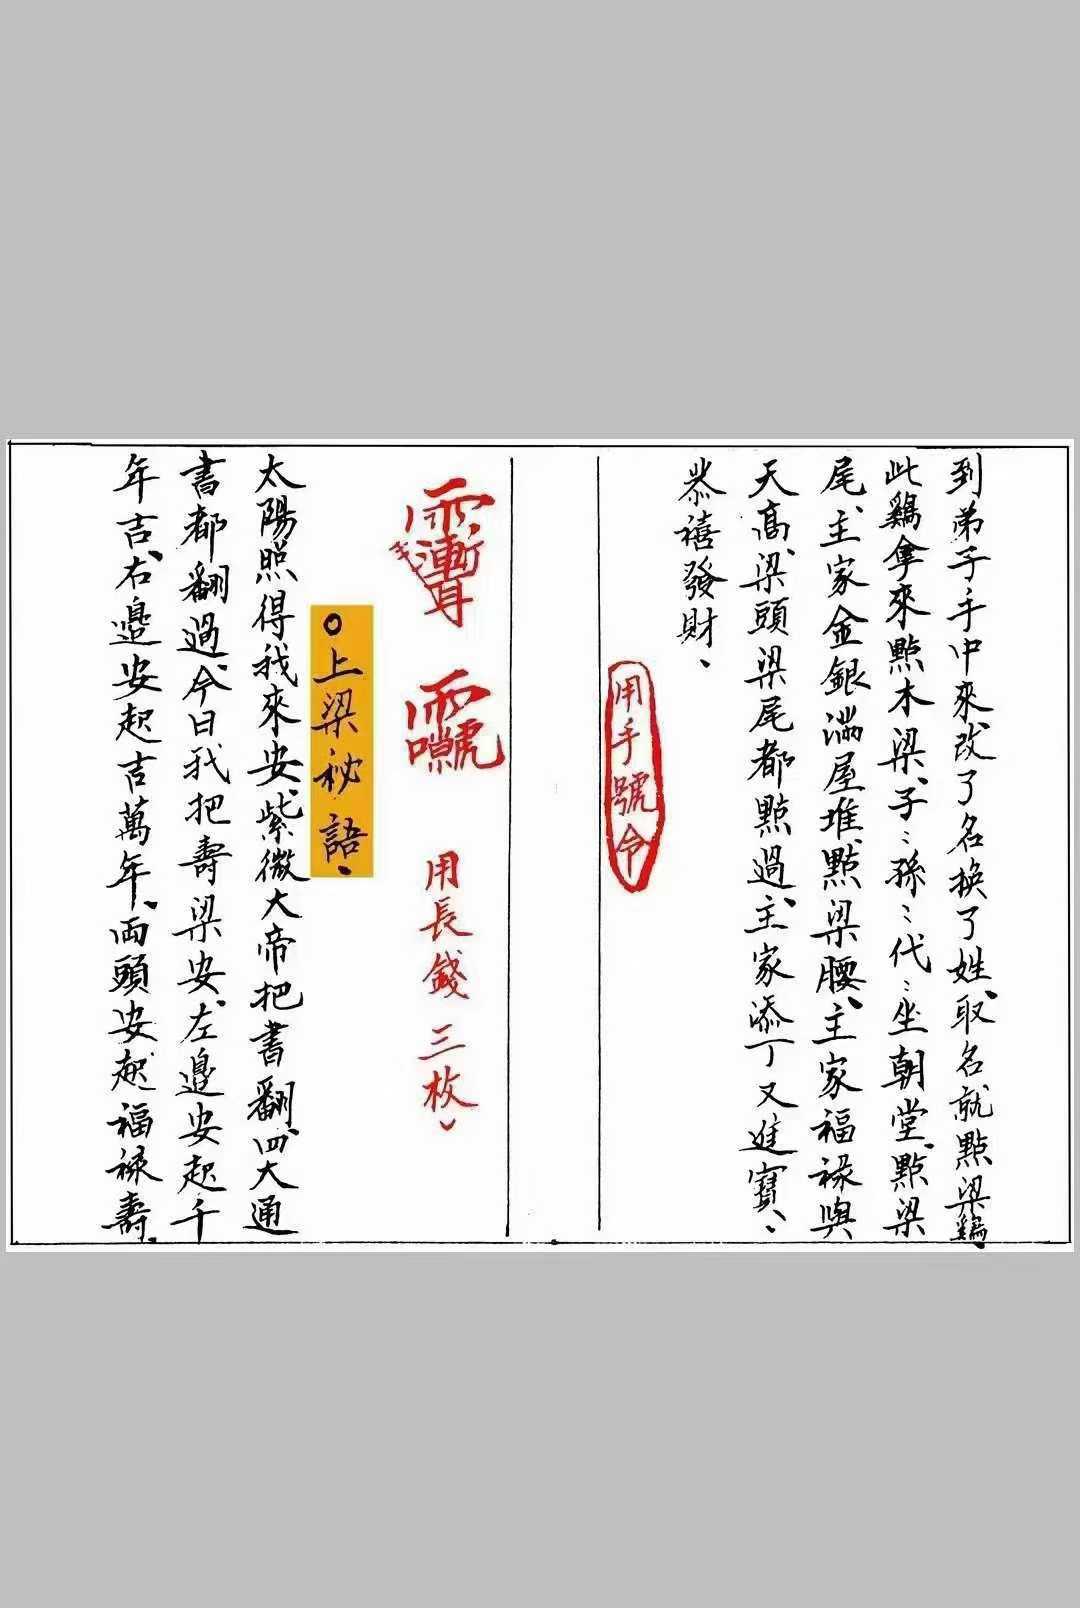 到弟子手中來改了名換了姓、取名就點梁鷄、
此鷄拿來點木梁、子:孫:代:坐朝堂、點梁
尾、主家金銀滿屋堆、點梁腰、主家福祿與
天高、梁頭梁尾都點過、主家添丁又進寶、
恭禧發財、
用手號令
用長錢三枚
○上梁秘語、
太陽照得我來安、紫微大帝把書翻、四大通
書都翻過、今日我把壽梁安、左邊安起千
年吉、右邊安起吉萬年、両頭安起福祿壽、